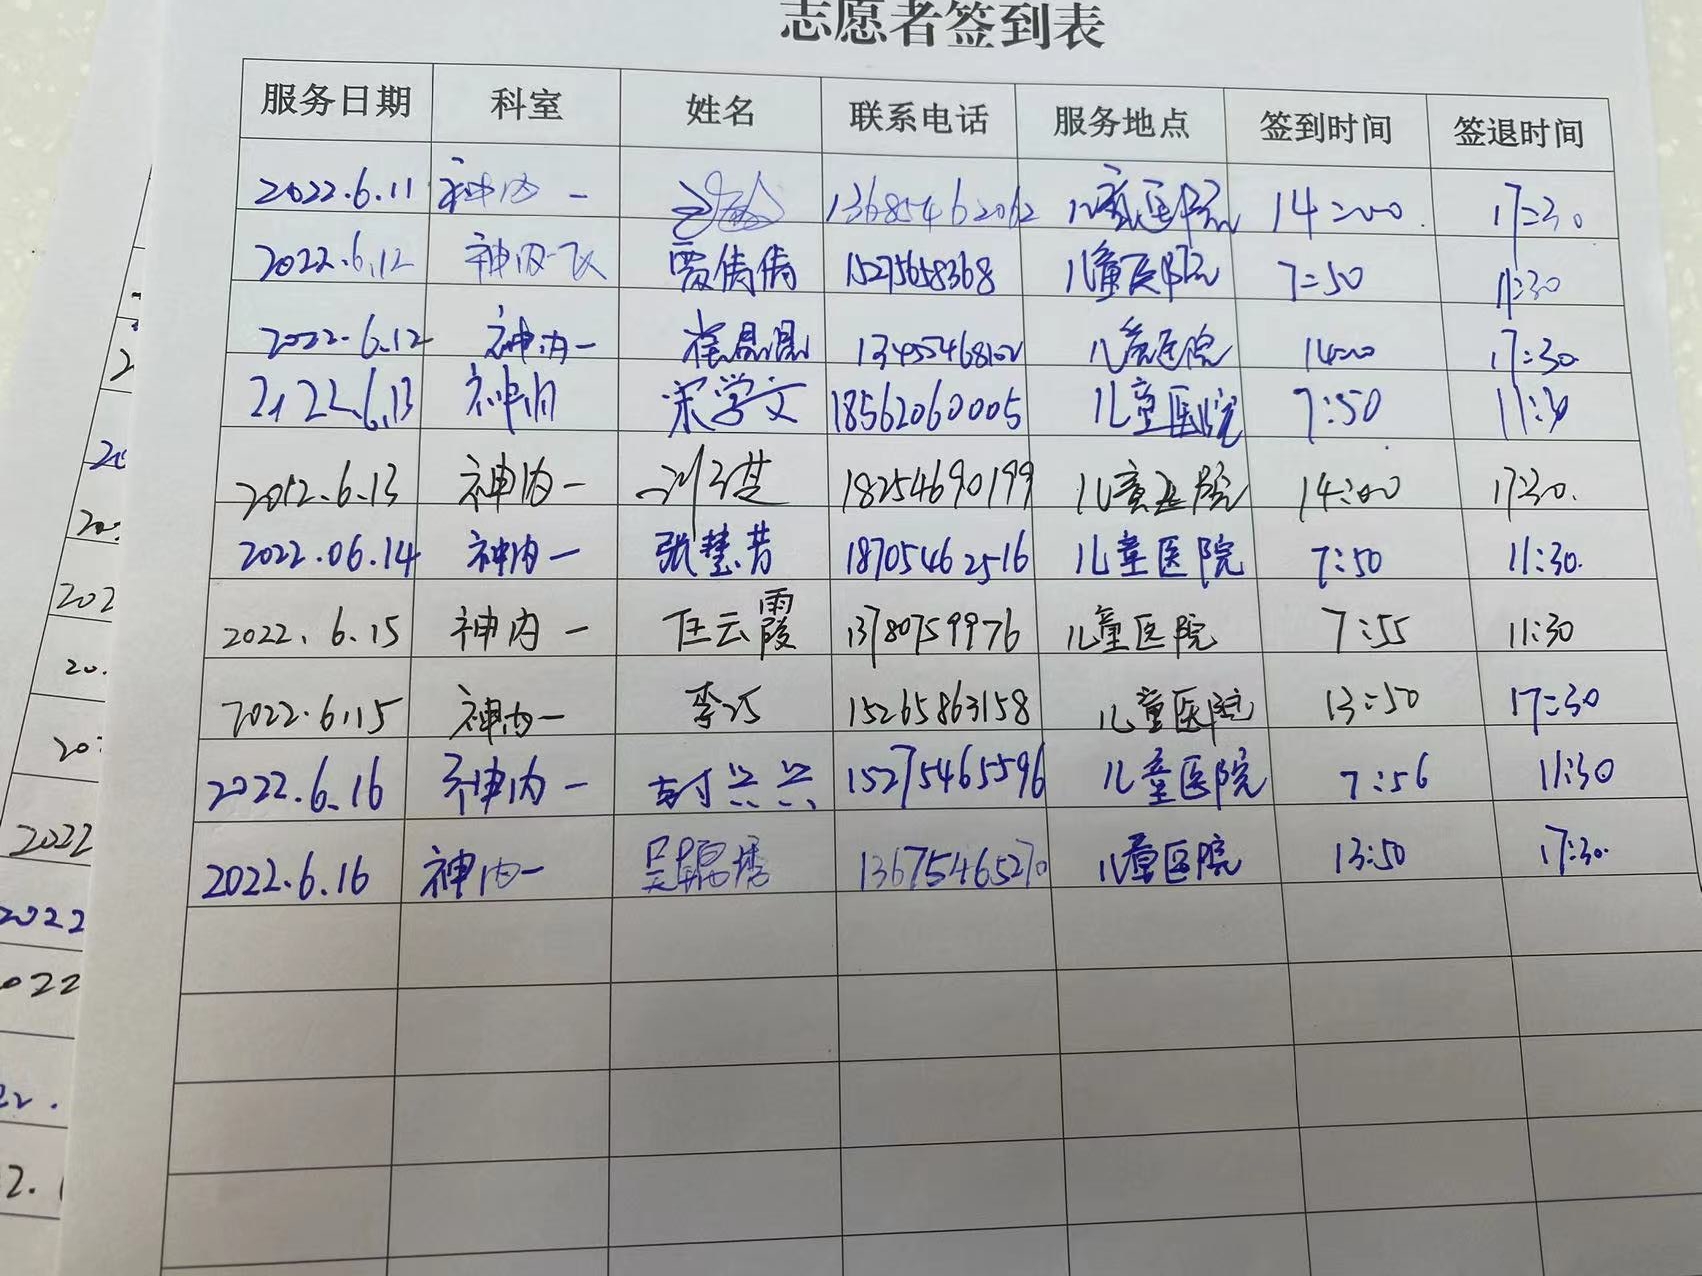 志愿者签到表
服务日期 科室 姓名 联系电话 服务地点 签到时间 签退时间
2022.6.11 神内一 13685462062 儿童医院 14:00 17:30
2022.6.12 神内一 贾倩倩 1527568368 儿童医院 7:50 11:30
2022.6.12 神内一 崔晶晶 儿童医院 14:00 17:30
2022.6.13 神内 宋学文 18562060005 儿童医院 7:50 11:30
2022.6.13 神内一 18254690199 儿童医院 14:00 17:30.
2022.06.14 神内一 张慧芳 18705462516 儿童医院 7:50 11:30.
2022.6.15 神内一 任云霞 13780759976 儿童医院 7:55 11:30
2022.6.15 神内一 李巧 15265863158 儿童医院 13:50 17:30
2022.6.16 神内一 封兴兴 15275465596 儿童医院 7:56 11:30
2022.6.16 神内一 13675465270 儿童医院 13:50 17:30.
202
2022
2022
2022